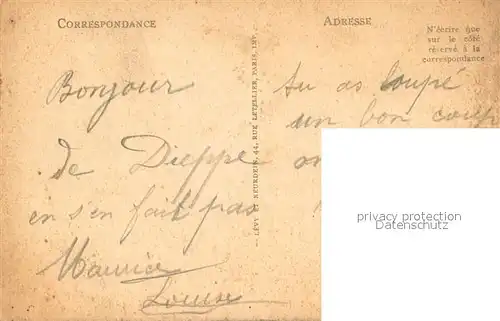 CORRESPONDANCE
ADRESSE
N'écrire que
sur le côté
réservé à la
correspondance
Bonjour
de Dieppe
en s'en fait pas
Maurice
Louise
tu as loupé
un bon coup
LÉVY ET NEURDEIN, 44, RUE LETELLIER, PARIS, IMP.
privacy protection
Datenschutz